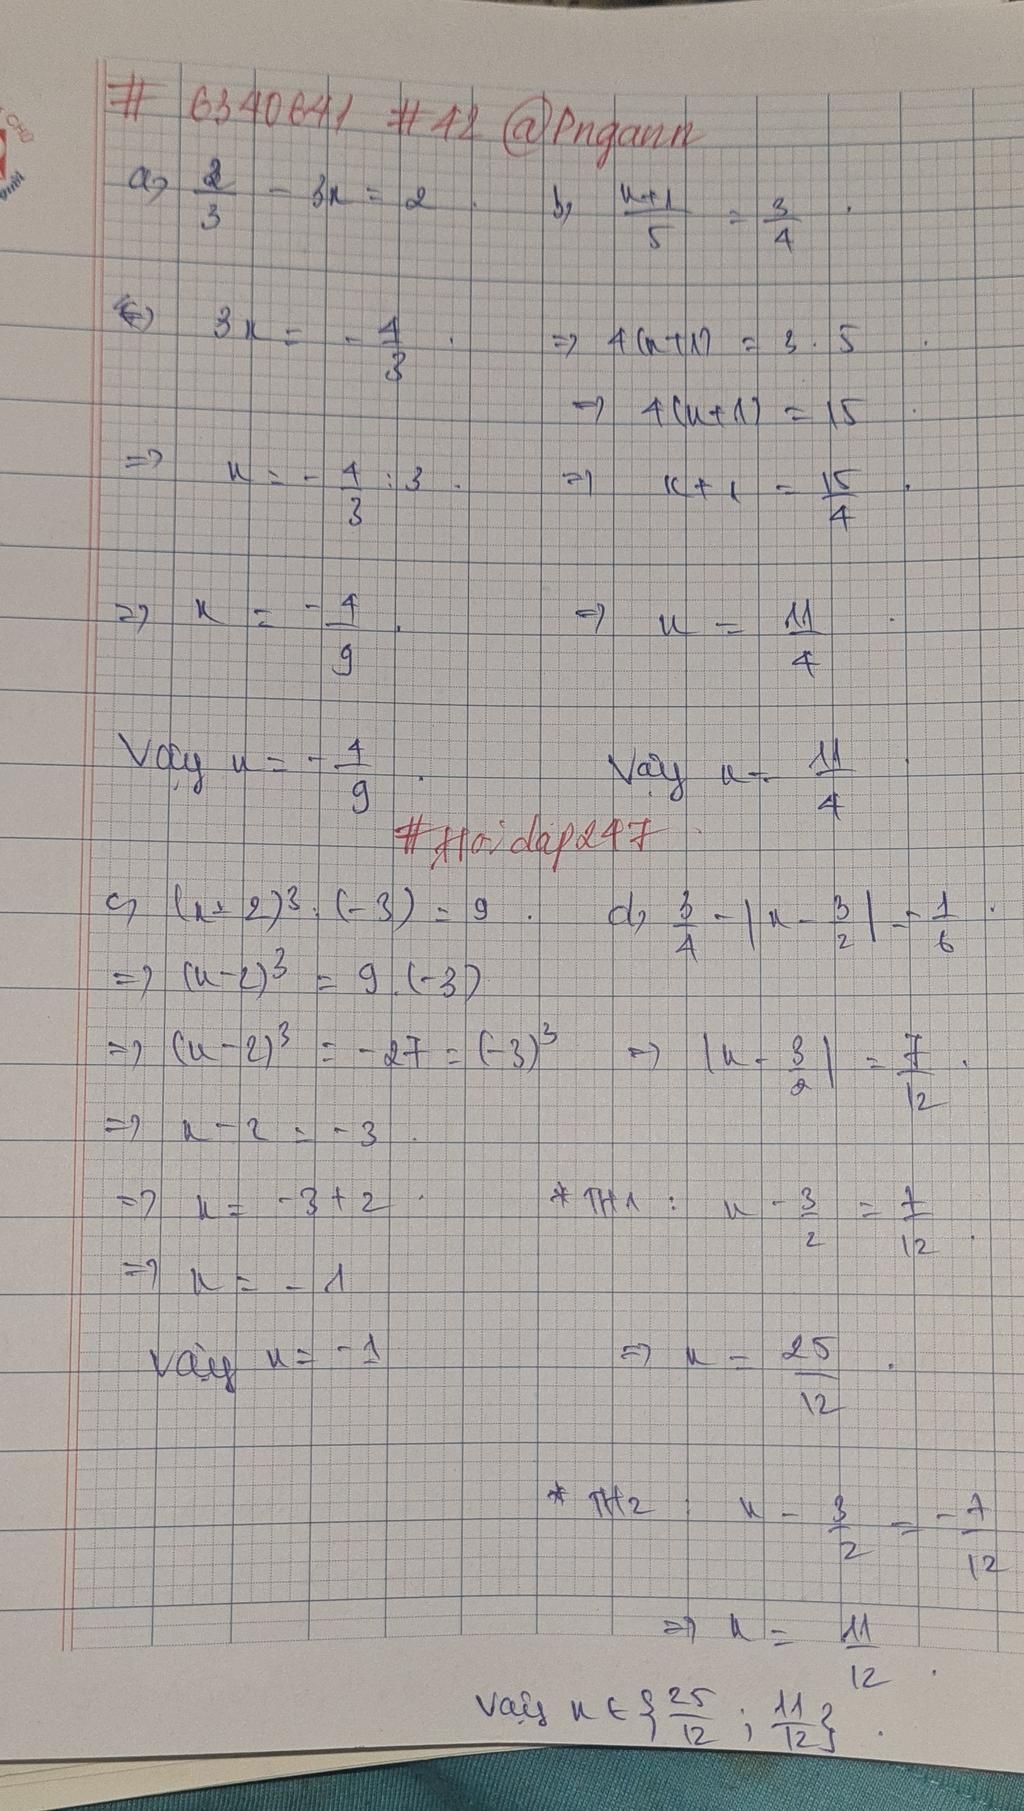 # 6340641 #12 @Pngann
a, 2/3 - 3x = 2 .
<=> 3x = - 4/3 .
=> x = - 4/3 : 3 .
=> x = - 4/9 .
Vậy x = - 4/9 .
b, x+1/5 = 3/4 .
=> 4(x+1) = 3 . 5 .
=> 4(x+1) = 15 .
=> x + 1 = 15/4 .
=> x = 11/4 .
Vậy x = 11/4
#Hoidap247
c, (x - 2)³ : (-3) = 9 .
=> (x-2)³ = 9 . (-3)
=> (x-2)³ = -27 = (-3)³
=> x - 2 = -3 .
=> x = -3 + 2 .
=> x = - 1
Vậy x = -1
d, 3/4 - |x - 3/2| = 1/6 .
=> |x - 3/2| = 7/12 .
* TH1 : x - 3/2 = 7/12 .
=> x = 25/12 .
* TH2 : x - 3/2 = - 7/12
=> x = 11/12 .
Vậy x ∈ {25/12 ; 11/12} .